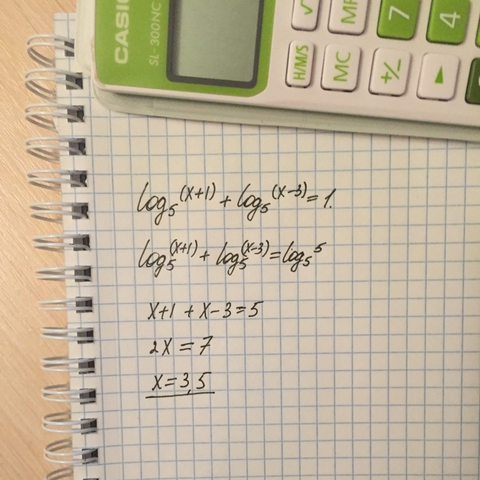 CASIO
SL-300NC
√
MR
7
4
H/M/S
MC
+/−
▲
log₅(x+1) + log₅(x−3) = 1.
log₅(x+1) + log₅(x−3) = log₅5
x+1 + x−3 = 5
2x = 7
x = 3,5